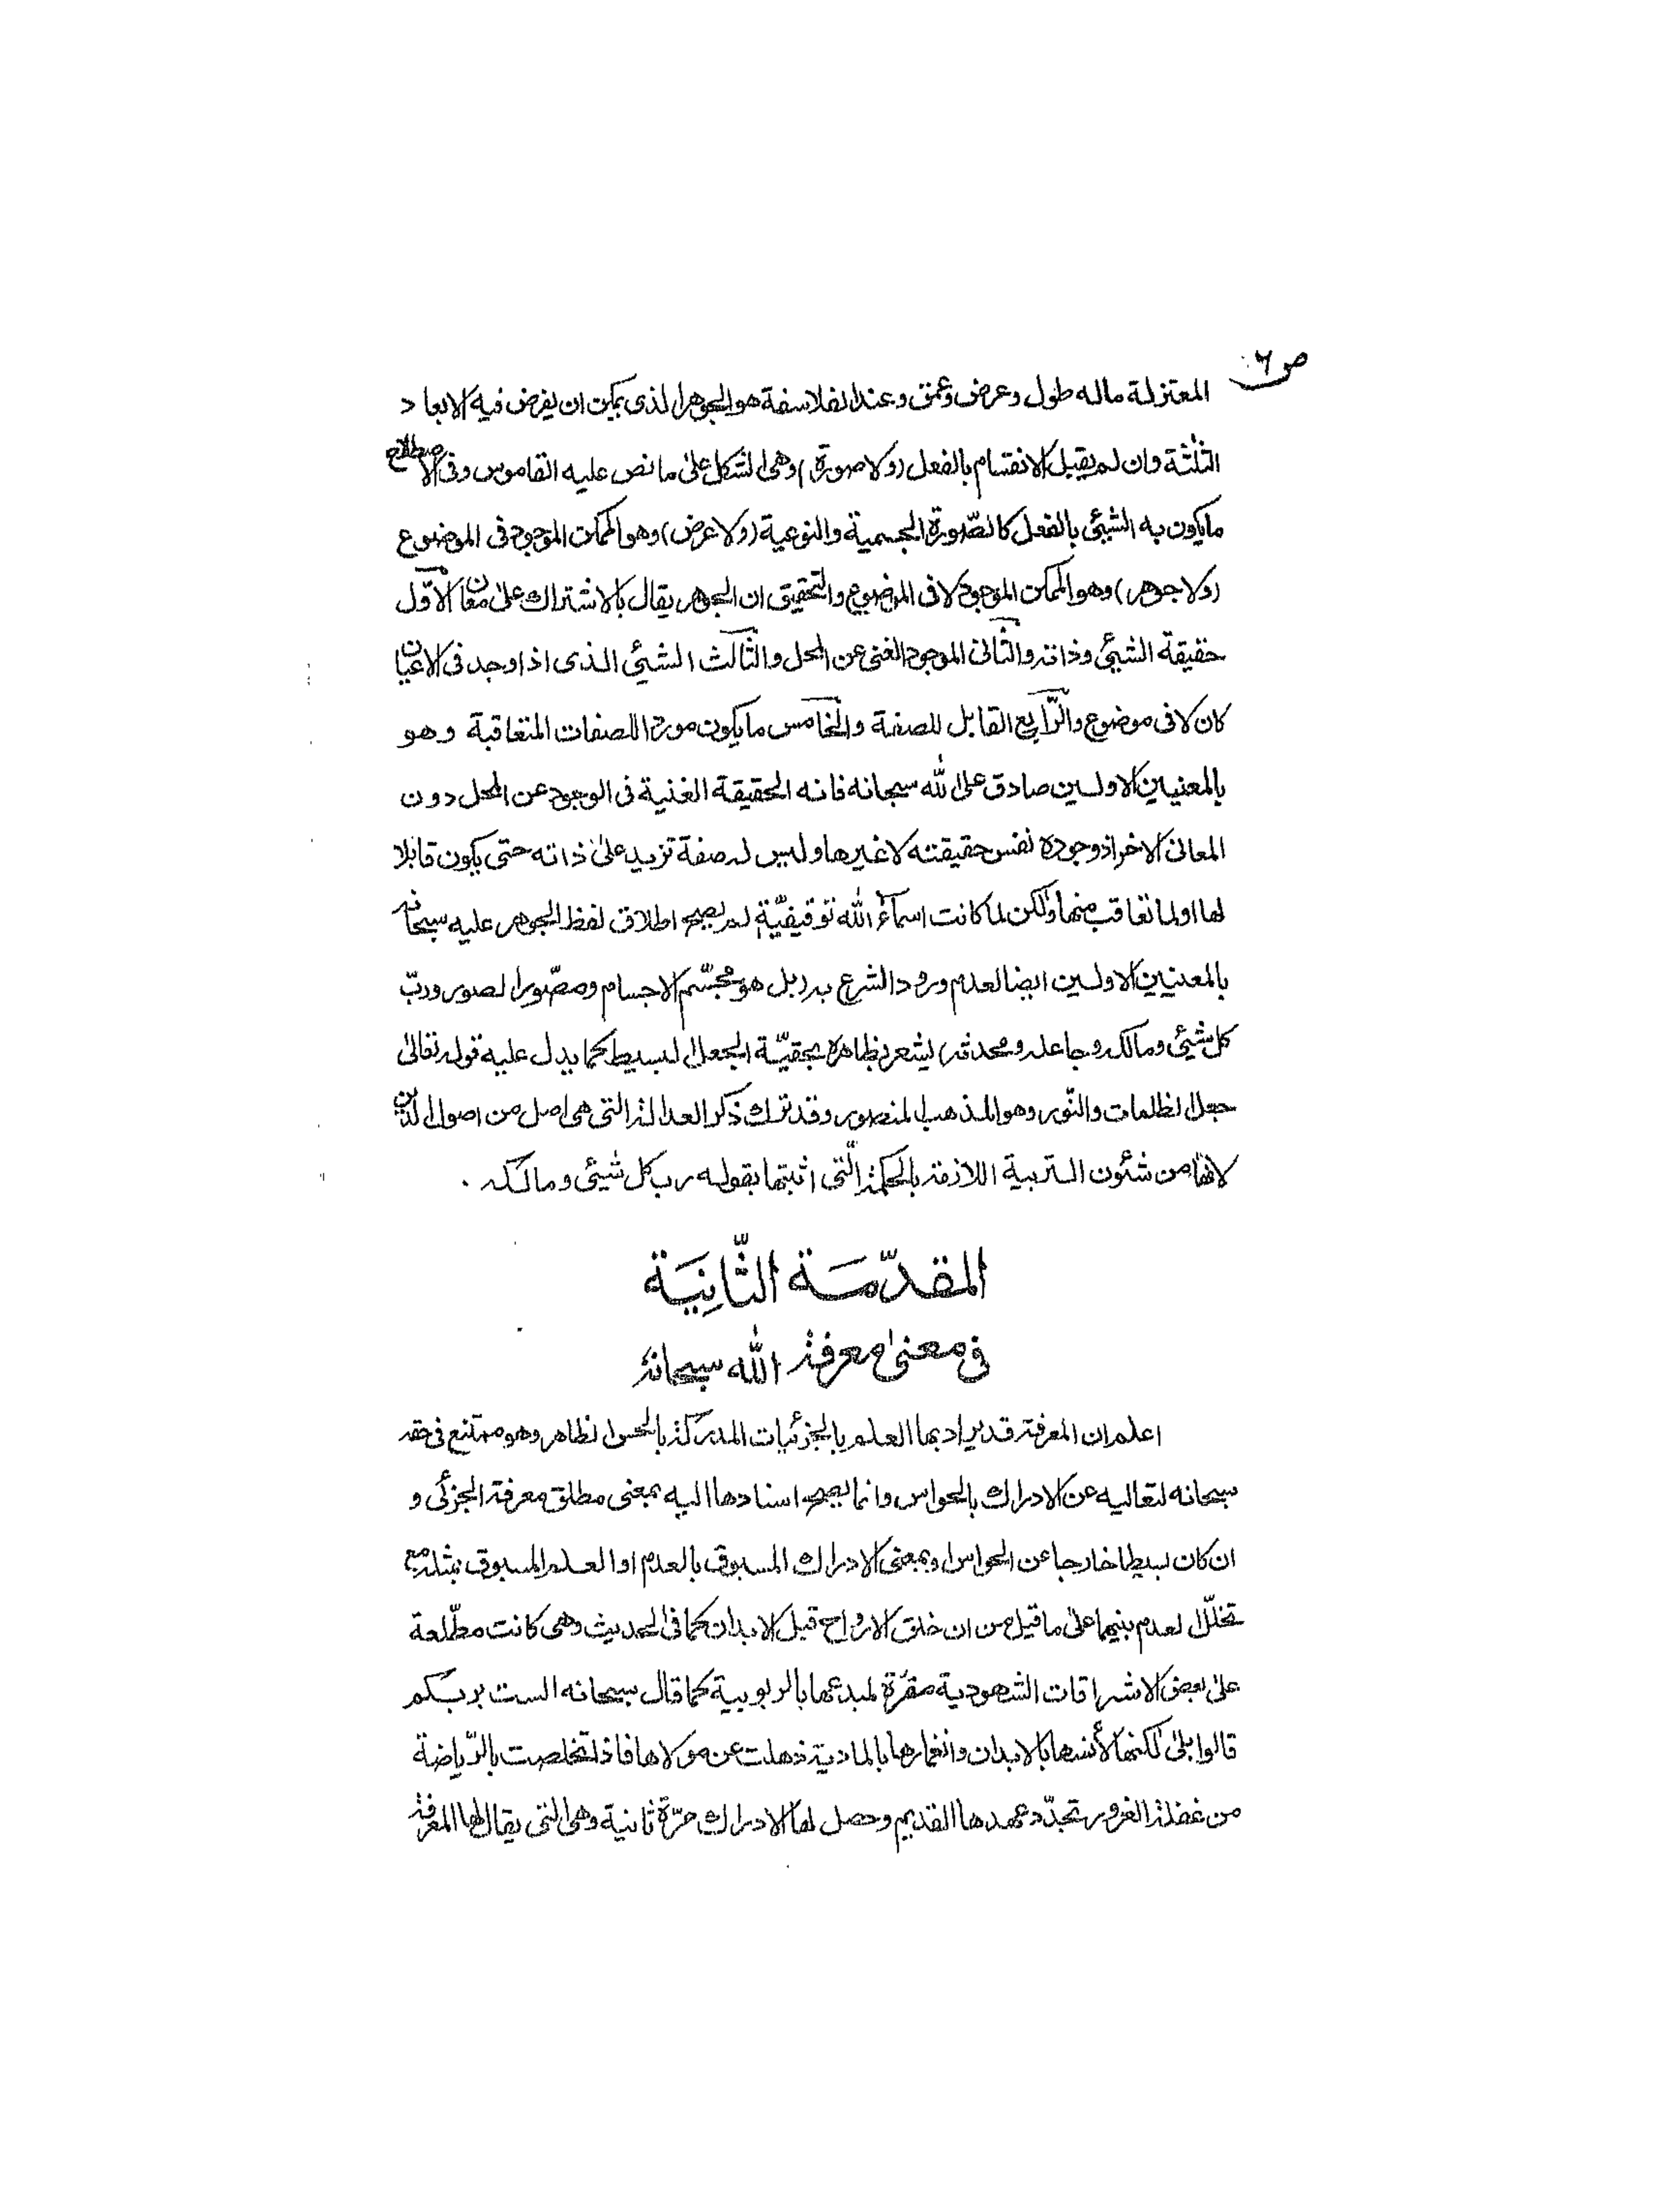 ص ٦
المعتزلة ماله طول وعرض وعمق وعند الفلاسفة هو الجوهر الذى يمكن ان يفرض فيه الابعاد
الثلثة وان لم يقبل الانقسام بالفعل (ولا صورة) وهى الشكل على ما نص عليه القاموس وفى الاصطلاح
مايكون به الشيئ بالفعل كالصّورة الجسمية والنوعية (ولا عرض) وهو الممكن الموجود فى الموضوع
(ولا جوهر) وهو الممكن الموجود لا فى الموضوع والتحقيق ان الجوهر يقال بالاشتراك على معان الاوّل
حقيقة الشيئ وذاته والثانى الموجود الغنى عن المحل والثالث الشيئ الذى اذا وجد فى الاعيان
كان لا فى موضوع والرّابع القابل للصفة والخامس مايكون موردا للصفات المتعاقبة وهو
بالمعنيين الاولين صادق على الله سبحانه فانه الحقيقة الغنية فى الوجود عن المحل دون
المعانى الاخر اذ وجوده نفس حقيقته لا غيرها وليس له صفة تزيد على ذاته حتى يكون قابلا
لها اولما تعاقب منها ولكن لما كانت اسمآء الله توقيفيّة لم يصح اطلاق لفظ الجوهر عليه سبحانه
بالمعنيين الاولين ايضا لعدم ورود الشرع به (بل هو مجسّم الاجسام ومصّور الصور وربّ
كل شيئ ومالكه وجاعله ومحدثه) يشعر بظاهره بحقيّة الجعل البسيط كما يدل عليه قوله تعالى
جعل الظلمات والنّور وهو المذهب المنصور وقد ترك ذكر العدالة التى هى اصل من اصول الدين
لانها من شئون التربية اللازمة بالحكمة الّتى اثبتها بقوله رب كل شيئ ومالكه .
المقدّمَة الثَّانِيَة
فى معنى معرفة الله سبحانهُ
اعلم ان المعرفة قد يراد بها العلم بالجزئيات المدركة بالحس الظاهر وهو ممتنع فى حقه
سبحانه لتعاليه عن الادراك بالحواس وانما يصح اسنادها اليه بمعنى مطلق معرفة الجزئى و
ان كان بسيطا خارجا عن الحواس او بمعنى الادراك المسبوق بالعدم او العلم المسبوق بمثله مع
تخلّل العدم بينهما على ما قيل من ان خلق الارواح قبل الابدان كما فى الحديث وهى كانت مطّلعة
على بعض الاشراقات الشهودية مقرّة لمبدعها بالربوبية كما قال سبحانه الست بربّكم
قالوا بلى لكنها لأنسها بالابدان وانغمارها بالمادية ذهلت عن مولاها فاذا تخلصت بالرّياضة
من غفلة الغرور تجدّد عهدها القديم وحصل لها الادراك مرّة ثانية وهى التى يقال لها المعرفة